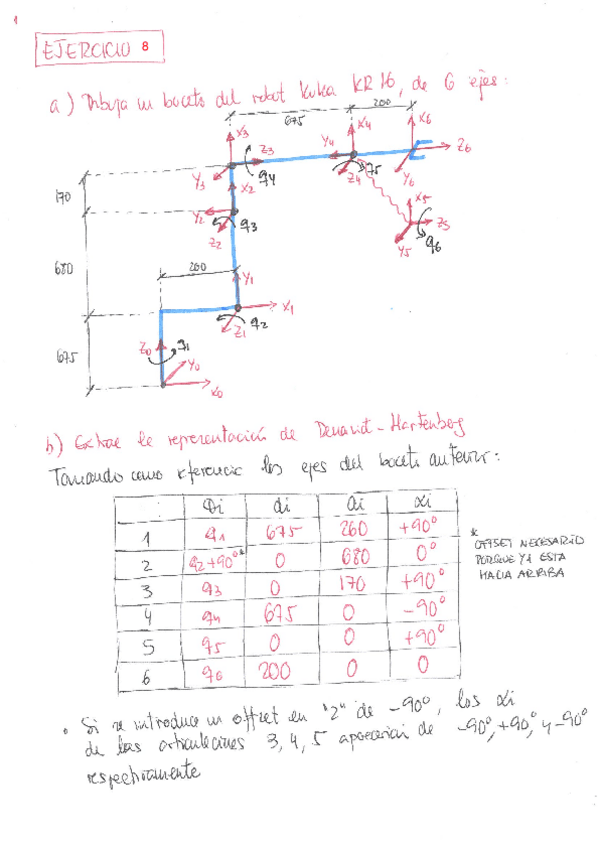 1
EJERCICIO 8
a) Dibuja un boceto del robot Kuka KR16, de 6 ejes:
675 200
X3 X4 X6
Z3 Y4 Z6
Y3 q4 Z4 q5 Y6
170 X2
Y2 q3 X5 Z5
Z2 Y5 q6
680 200 Y1
X1
Z1 q2
675 Z0 q1 Y0
X0
b) Extrae la representación de Denavit-Hartenberg
Tomando como referencia los ejes del boceto anterior:
Φi di ai αi
1 q1 675 260 +90°
2 q2+90°* 0 680 0°
3 q3 0 170 +90°
4 q4 675 0 -90°
5 q5 0 0 +90°
6 q6 200 0 0
* OFFSET NECESARIO
PORQUE Y1 ESTA
HACIA ARRIBA
• Si se introduce un offset en "2" de -90°, los αi
de las articulaciones 3, 4, 5 aparecerían de -90°, +90°, y -90°
respectivamente